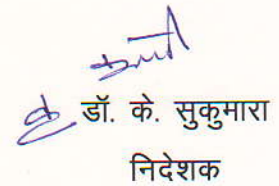 डॉ. के. सुकुमारा
निदेशक